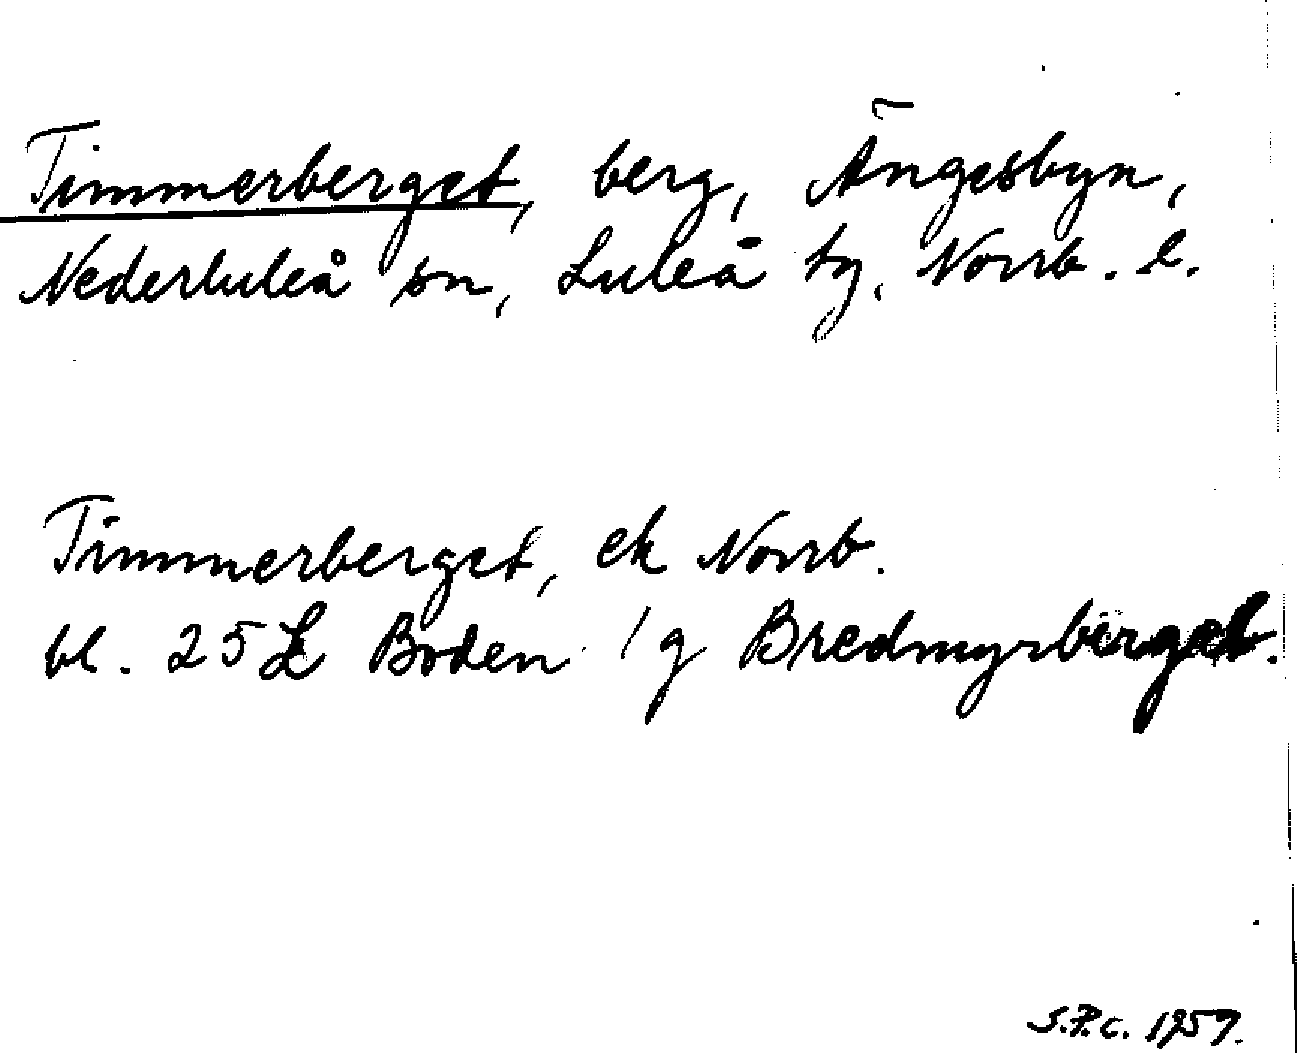 Timmerberget, berg, Ängesbyn,
Nederluleå sn, Luleå tg, Norrb. l.
Timmerberget, ek Norrb.
bl. 25 L Boden /g Bredmyrberget.
S.P.c. 1959.